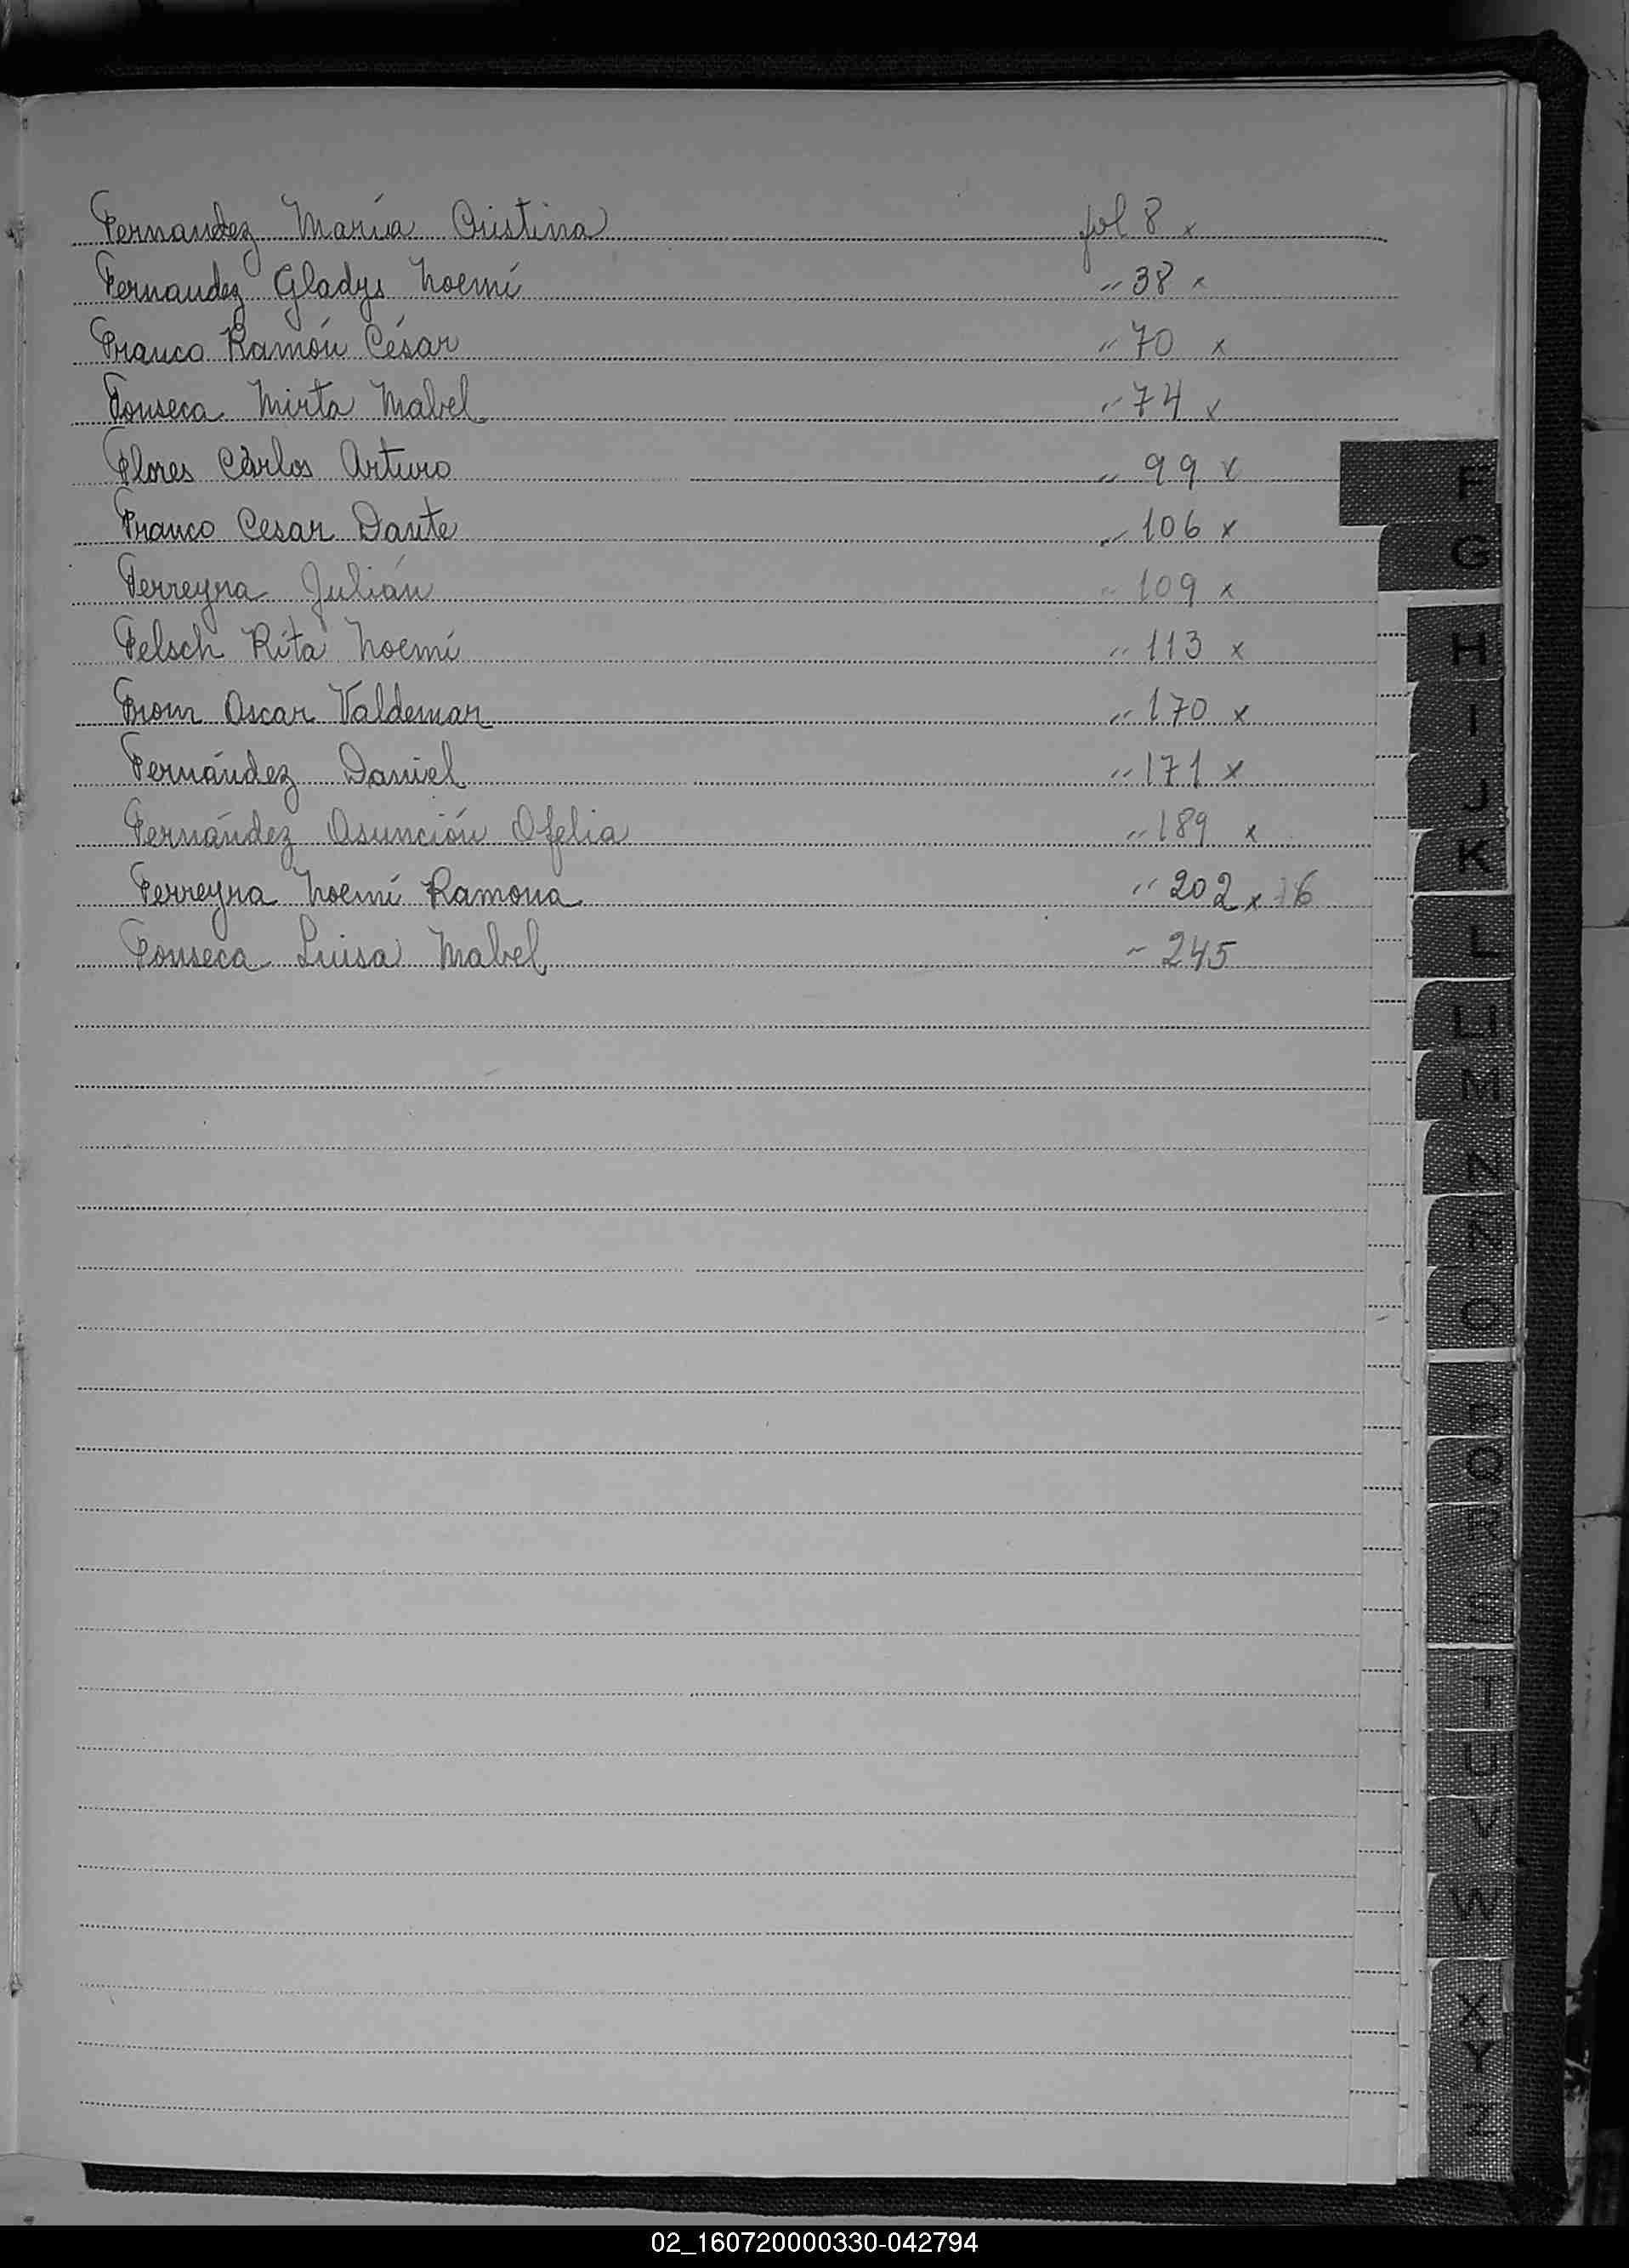 Fernandez María Cristina fol 8 x
Fernandez Gladys Noemí " 38 x
Franco Ramón César " 70 x
Fonseca Mirta Mabel " 74 x
Flores Carlos Arturo " 99 x
Franco Cesar Dante " 106 x
Ferreyra Julián " 109 x
Felsch Rita Noemí " 113 x
From Oscar Valdemar " 170 x
Fernández Daniel " 171 x
Fernández Asunción Ofelia " 189 x
Ferreyra Noemí Ramona " 202 x 16
Fonseca Luisa Mabel " 245
F
G
H
I
J
K
L
LL
M
N
Ñ
O
P
Q
R
S
T
U
V
W
X
Y
Z
02_160720000330-042794